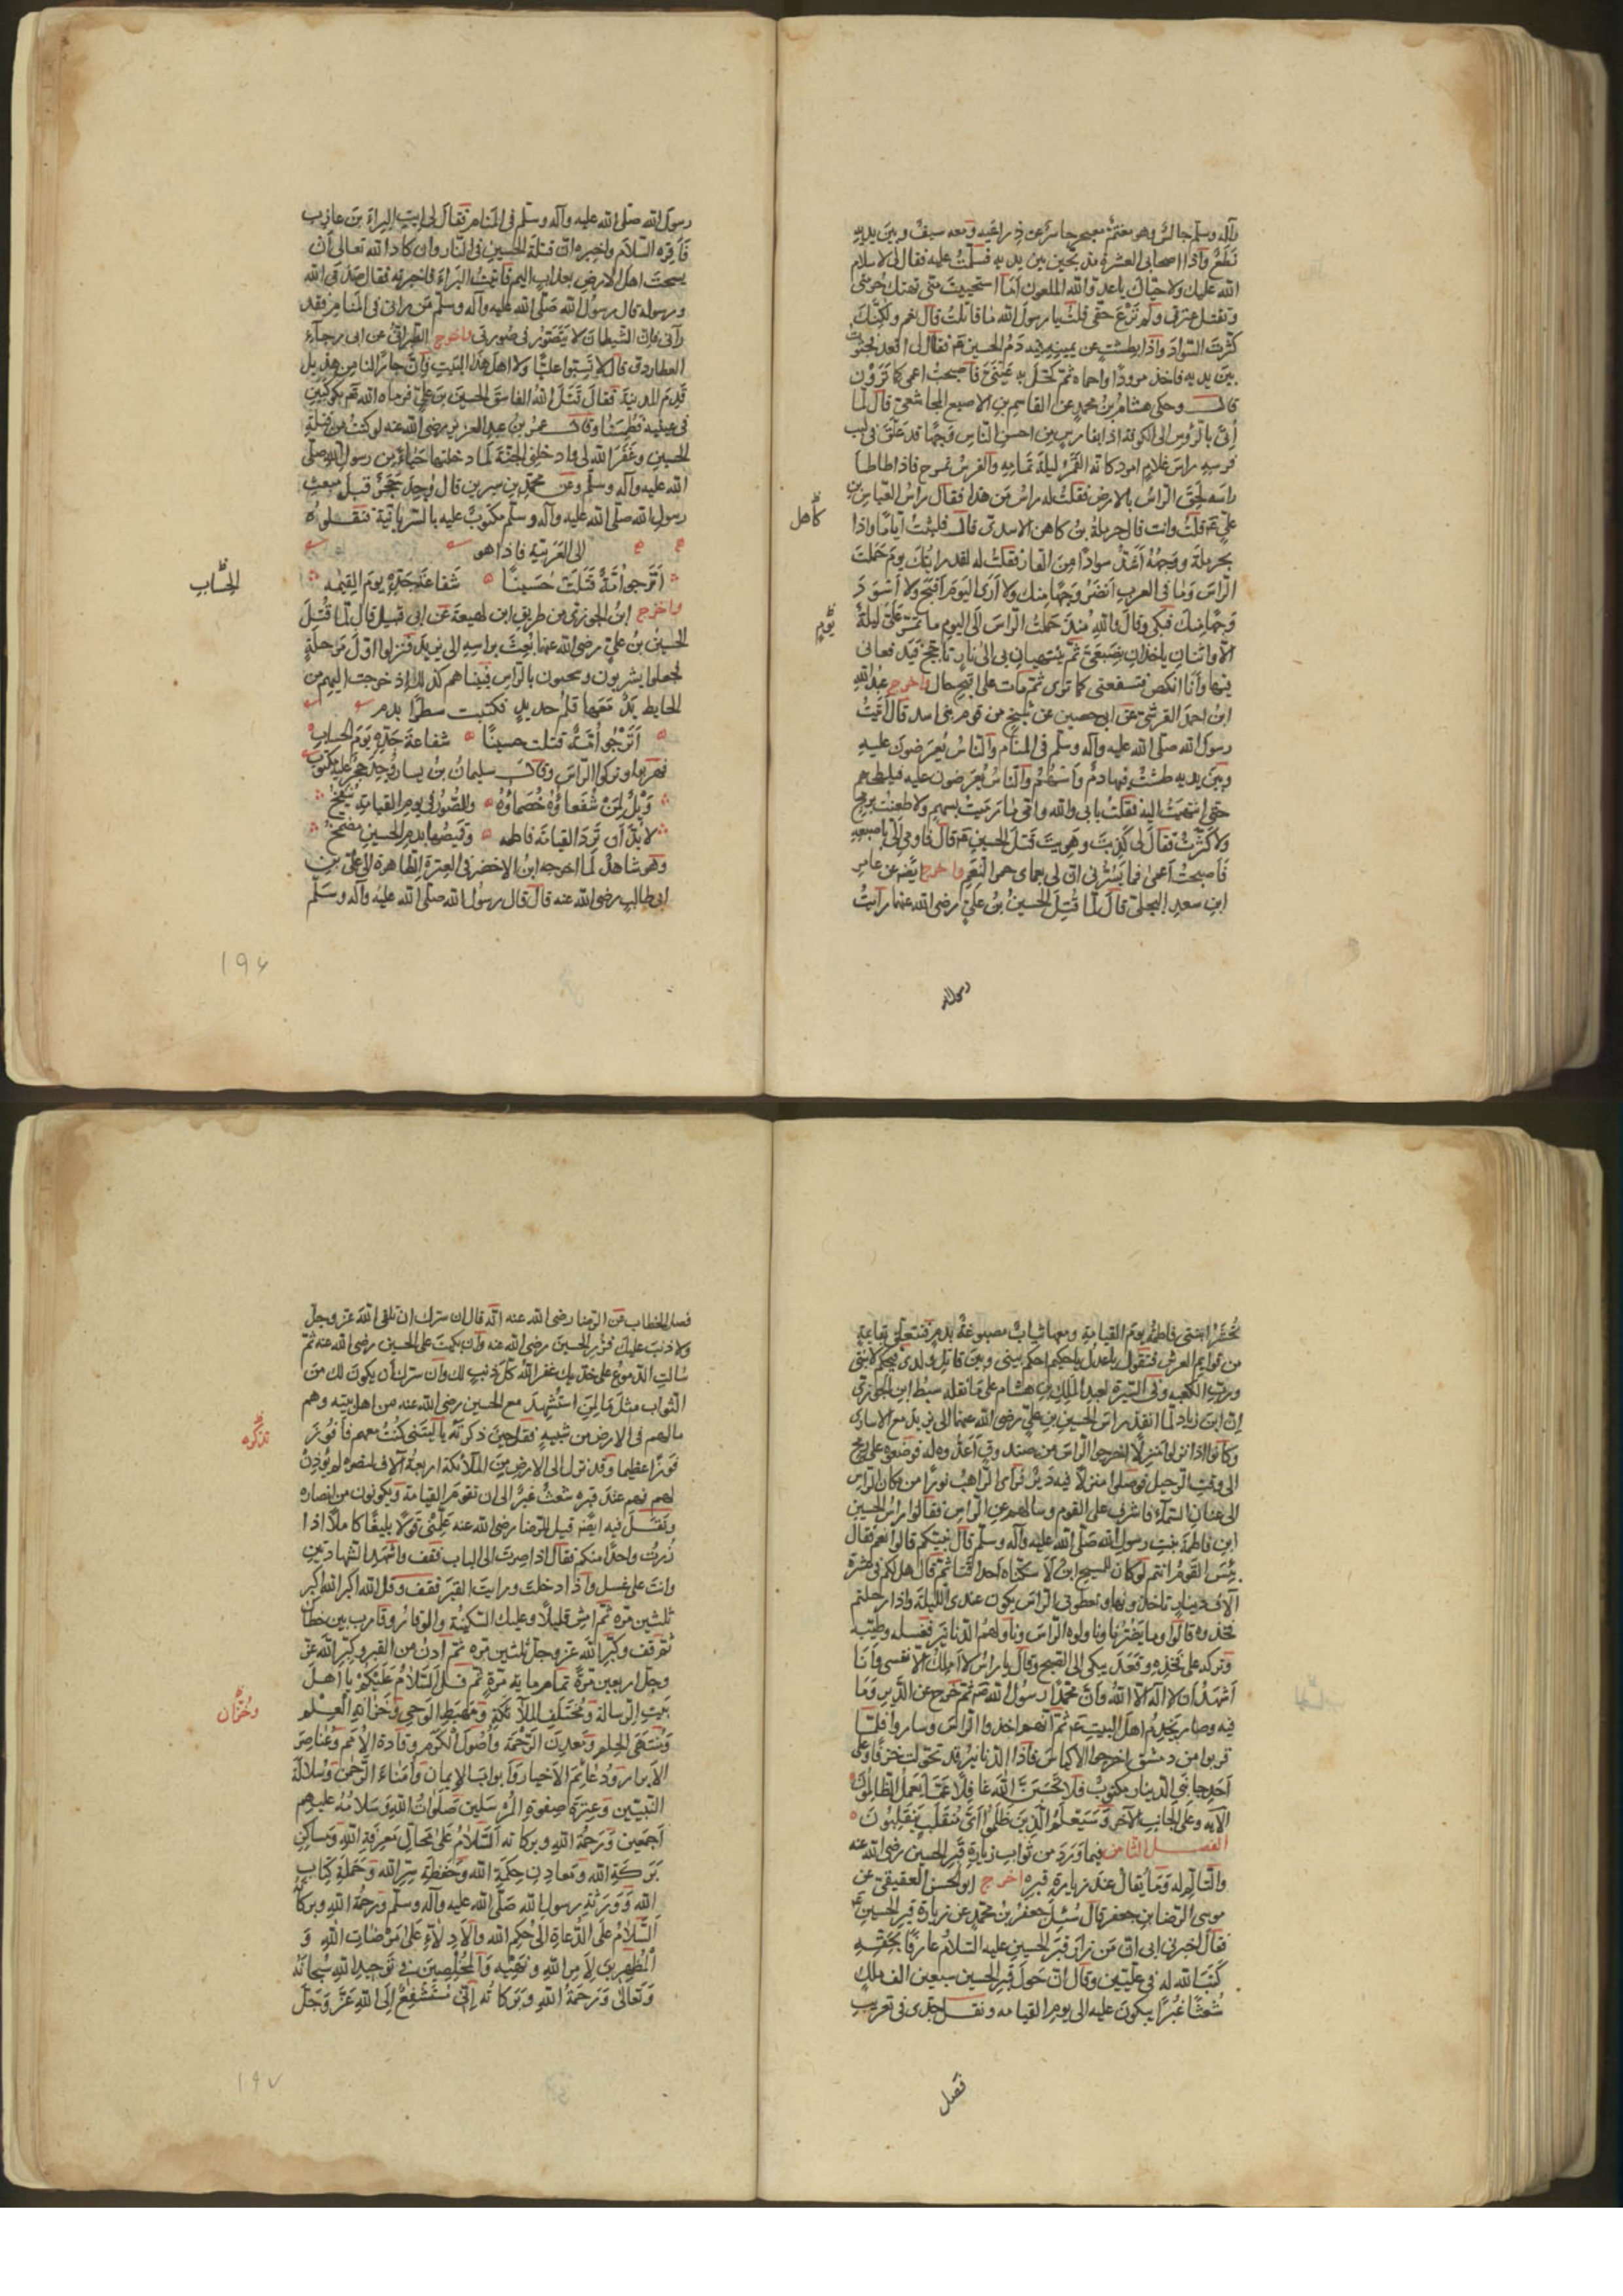 وآله وسلم جالس وهو مغتم معبر حاسر عن ذراعيه ومعه سيف وبين يديه
نطع واذا اصحابي العشرة مذبحين بين يديه فسلمت عليه فقال لي لا سلام
الله عليك ولا حياك يا عدو الله الملعون اما استحييت مني تهتك حرمتي
وتقتل عترتي ولم ترع حقي قلت يا رسول الله ما قاتلت قال نعم ولكنك
كثرت السواد واذا بطشت عن يمينه فيه دم الحسين فقال لي اقعد فجثوت
بين يديه فاخذ مرودا واحماه ثم كحل به عيني فاصبحت اعمى كما ترون
قال وحكى هشام بن محمد عن القاسم بن الاصبغ المجاشعي قال لما
أتي بالرؤس الى الكوفة اذا بفارس من احسن الناس وجها قد علق في لبب
فرسه راس غلام امرد كانه القمر ليلة تمامه والفرس تمرح فاذا طاطا
راسه لحق الراس بالارض فقلت له راس من هذا فقال راس العباس بن
علي قلت وانت قال حرملة بن كاهن الاسدي قال فلبثت اياما واذا
كاهل
بحرملة ووجهه اشد سوادا من القار فقلت له لقد رايتك يوم حملت
الراس وما في العرب انضر وجها منك ولا ارى اليوم اقبح ولا اسود
وجها منك فبكى وقال والله منذ حملت الراس الى اليوم ما تمر علي ليلة
يوم
الا واثنان ياخذان بضبعي ثم ينتهيان بي الى نار تاجج فيدفعاني
فيها وانا انكص فتسفعني كما ترى ثم مات على اقبح حال واخرج عبد الله
ابن احمد القرشي عن ابي حصين عن شيخ من قوم بني اسد قال رايت
رسول الله صلى الله عليه وآله وسلم في المنام والناس يعرضون عليه
وبين يديه طشت فيها دم واسهم والناس يعرضون عليه فيلطخهم
حتى انتهيت اليه فقلت بابي والله وامي ما رميت بسهم ولا طعنت برمح
ولا كثرت فقال لي كذبت وهويت قتل الحسين قال فاومى الي باصبعه
فاصبحت اعمى فما يسرني ان لي بعماي حمر النعم واخرج ايضا عن عامر
ابن سعيد البجلي قال لما قتل الحسين بن علي رضي الله عنهما رايت
رسول الله
رسول الله صلى الله عليه وآله وسلم في المنام فقال لي ايت البراء بن عازب
فاقره السلام واخبره ان قتلة الحسين في النار وان كاد الله تعالى أن
يسحت اهل الارض بعذاب اليم فاتيت البراء فاخبرته فقال صدق الله
ورسوله قال رسول الله صلى الله عليه وآله وسلم من راني في المنام فقد
رآني فان الشيطان لا يتصور في صورتي واخرج الطبراني عن ابي رجاء
العطاردي قال لا تسبوا عليا ولا اهل هذا البيت فان جارا لنا من هذيل
قدم المدينة فقال قتل الله الفاسق الحسين بن علي فرماه الله بكوكبين
في عينيه فطمستا وقال عمر بن عبد العزيز رضي الله عنه لو كنت من قتلة
الحسين وغفر الله لي وادخلني الجنة لما دخلتها حياء من رسول الله صلى
الله عليه وآله وسلم وعن محمد بن سيرين قال وجد حجر قبل مبعث
رسول الله صلى الله عليه وآله وسلم مكتوب عليه بالسريانية فنقلوه
الى العربية فاذا هو
اترجو امة قتلت حسينا شفاعة جده يوم القيمه
الحساب
واخرج ابن الجوزي من طريق ابن لهيعة عن ابي قبيل قال لما قتل
الحسين بن علي رضي الله عنهما بعث براسه الى يزيد فنزلوا اول مرحلة
فجعلوا يشربون ويحيون بالراس فبينا هم كذلك اذ خرجت اليهم من
الحايط يد معها قلم حديد فكتبت سطرا بدم
اترجو امة قتلت حسينا شفاعة جده يوم الحساب
فهربوا وتركوا الراس وقال سليمان بن يسار وجد حجر عليه مكتوب
ويل لمن شفعاؤه خصماؤه والصور في يوم القيامة ينفخ
لا بد أن ترد القيامة فاطمه وقميصها بدم الحسين مضمخ
وهو شاهد لما اخرجه ابن الاخضر في العترة الطاهرة لا علي بن
ابي طالب رضي الله عنه قال قال رسول الله صلى الله عليه وآله وسلم
١٩٦
تحشر ابنتي فاطمة يوم القيامة ومعها ثياب مصبوغة بدم فتتعلق بقايمة
من قوايم العرش فتقول يا عدل يا حكيم احكم بيني وبين قاتل ولدي فيحكم لابنتي
ورب الكعبه وفي السيرة لعبد الملك بن هشام على ما نقله سبط ابن الجوزي
ان ابن زياد لما انفذ راس الحسين بن علي رضي الله عنهما الى يزيد مع الاسارى
وكانوا اذا نزلوا منزلا اخرجوا الراس من صندوق أعدوه له فوضعوه على رمح
الى وقت الرحيل فوصلوا منزلا فيه دير فراى الراهب نورا من مكان الراس
الى عنان السماء فاشرف على القوم وسالهم عن الراس فقالوا راس الحسين
ابن فاطمة بنت رسول الله صلى الله عليه وآله وسلم قال نبيكم قالوا نعم فقال
بئس القوم انتم لو كان للمسيح ابن لاسكناه احداقنا ثم قال هل لكم في عشرة
آلاف دينار تاخذونها وتعطوني الراس يكون عندي الليلة واذا رحلتم
تخذوه قالوا وما يضرنا وناولوه الراس وناولهم الدنانير فغسله وطيبه
وتركه على فخذه وقعد يبكي الى الصبح وقال يا راس لا املك الا نفسي وأنا
أشهد ان لا اله الا الله وان محمدا رسول الله ثم خرج عن الدير وما
فيه وصار يخدم اهل البيت ثم انهم اخذوا الراس وساروا فلما
قربوا من دمشق اخرجوا الاكياس فاذا الدنانير قد تحولت خزفا وعلى
أحد جانبي الدينار مكتوب فلا تحسبن الله غافلا عما يعمل الظالمون
الآيه وعلى الجانب الآخر وسيعلم الذين ظلموا اي منقلب ينقلبون
الفصل الثامن فيما ورد من ثواب زيارة قبر الحسين رضي الله عنه
والتالم له وما يقال عند زيارة قبره اخرج ابو الحسن العقيقي عن
موسى الرضا بن جعفر قال سئل جعفر بن محمد عن زيارة قبر الحسين
فقال اخبرني ابي ان من زار قبر الحسين عليه السلام عارفا بحقه
كتب الله له في عليين وقال ان حول قبر الحسين سبعين الف ملك
شعثا غبرا يبكون عليه الى يوم القيامه ونقل جدي في تعريب
فصل
فصل الخطاب عن الرضا رضي الله عنه انه قال ان سرك ان تلقى الله عز وجل
ولا ذنب عليك فزر الحسين رضي الله عنه وان بكيت على الحسين رضي الله عنه ثم
سالت الدموع على خديك غفر الله كل ذنب لك وان سرك أن يكون لك من
الثواب مثل ما لمن استشهد مع الحسين رضي الله عنه من اهل بيته وهم
ما لهم في الارض من شبيه فقل حين ذكرته يا ليتني كنت معهم فافوز
تذكره
فوزا عظيما وقد نزل الى الارض من الملائكة اربعة آلاف لنصره لم يؤذن
لهم فهم عند قبره شعث غبر الى ان تقوم القيامة ويكونون من انصاره
ونقل فيه ايضا قيل للرضا رضي الله عنه علمني قولا بليغا كاملا اذا
زرت واحدا منكم فقال اذا صرت الى الباب فقف واشهد الشهادتين
وانت على غسل واذا دخلت ورايت القبر فقف وقل الله اكبر الله اكبر
ثلثين مره ثم امش قليلا وعليك السكينة والوقار وقارب بين خطاك
ثم قف وكبر الله عز وجل ثلثين مره ثم ادن من القبر وكبر الله عز
وجل اربعين مرة تمام مايه مرة ثم قل السلام عليكم يا اهل
بيت الرسالة ومختلف الملائكة ومهبط الوحي وخزانه العلم
وخزان
ومنتهى الحلم ومعدن الرحمة وأصول الكرم وقادة الامم وعناصر
الابرار ودعائم الاخيار وابواب الايمان وأمناء الرحمن وسلالة
النبيين وعترة صفوة المرسلين صلوات الله وسلامه عليهم
أجمعين ورحمة الله وبركاته السلام على محال معرفة الله ومساكن
بركة الله ومعادن حكمة الله وحفظة سر الله وحملة كتاب
الله وورثة رسول الله صلى الله عليه وآله وسلم ورحمة الله وبركاته
السلام على الدعاة الى حكم الله والادلاء على مرضات الله و
المظهرين لامر الله ونهيه والمخلصين في توحيد الله سبحانه
وتعالى ورحمة الله وبركاته إني مستشفع إلى الله عز وجل
١٩٧